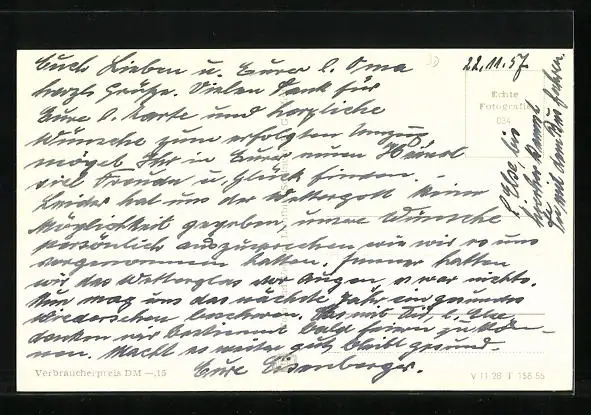 22.11.57
Euch Lieben u. Eurer l. Oma
herzl. Grüße. Vielen Dank für
Eure l. Karte und herzliche
Wünsche zum erfolgten Umzug
möget Ihr in Eurem neuen Häusel
viel Freude u. Glück finden. -
Leider hat uns der Wettergott keine
Möglichkeit gegeben unsere Wünsche
persönlich auszusprechen wie wir es uns
vorgenommen hatten. Immer hatten
wir das Wetterglas vor Augen, es war nichts.
Nun mag uns das nächste Jahr ein gesundes
Wiedersehen bescheren. Das mit Dir, l. Else
denken wir bestimmt bald feiern zu kön-
nen. Macht es weiter gut, bleibt gesund.
Eure Eisenberger.
l. Else, bis
Du mit dem Bus fahren
Echte
Fotografie
034
Verbraucherpreis DM —,15
V 11 28 T 156 55